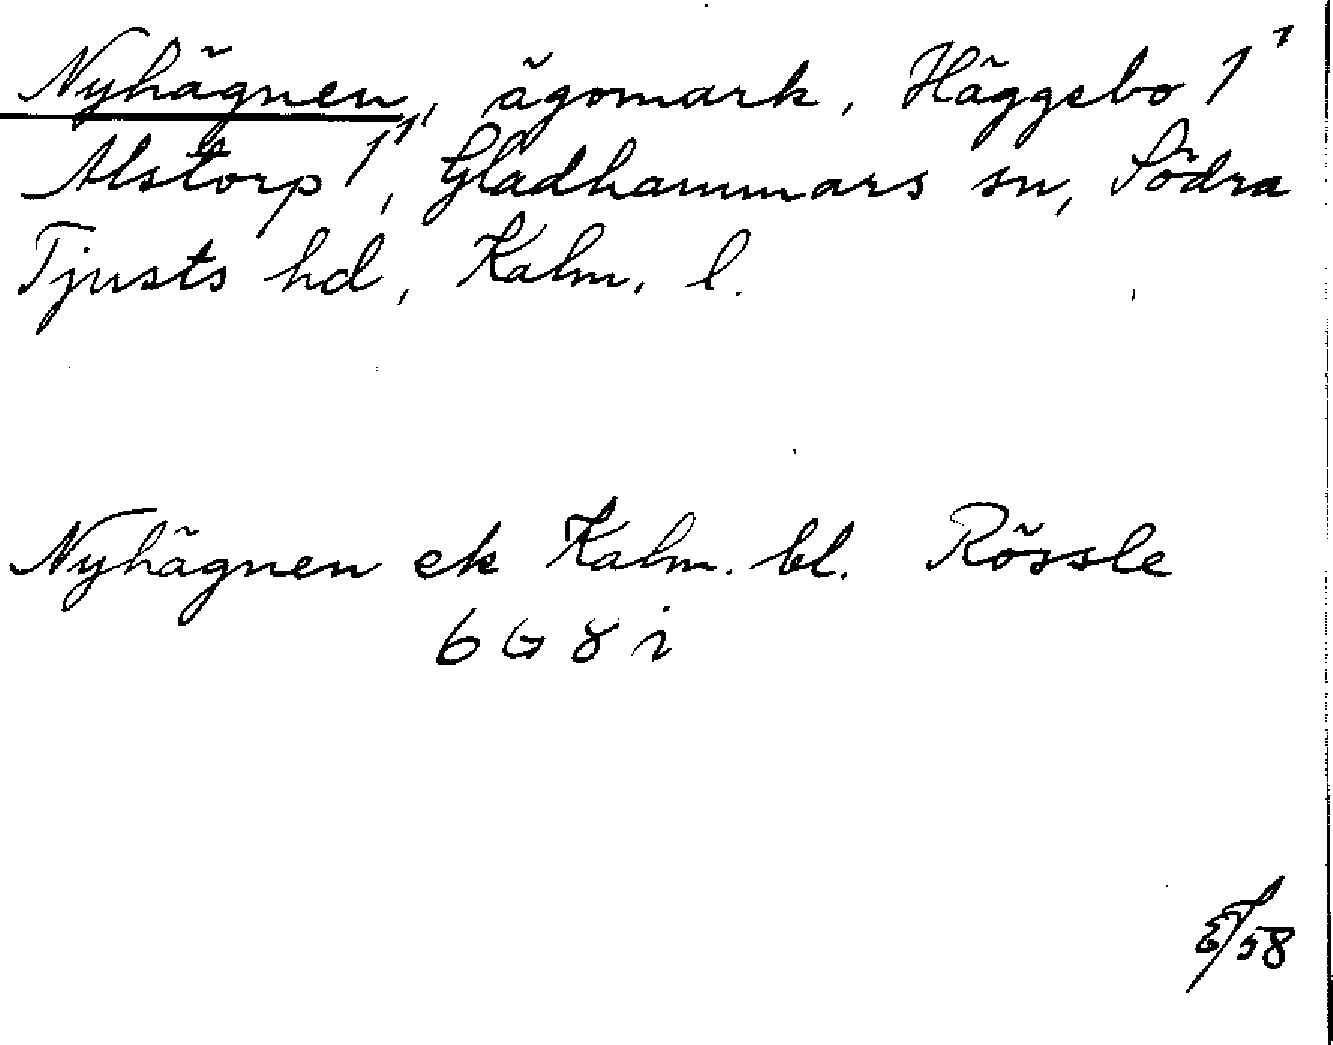 Nyhägnen, ägomark, Häggebo 1¹
Alstorp 1¹, Gladhammars sn, Södra
Tjusts hd, Kalm. l.
Nyhägnen ek Kalm. bl. Rössle
6 G 8 i
/58